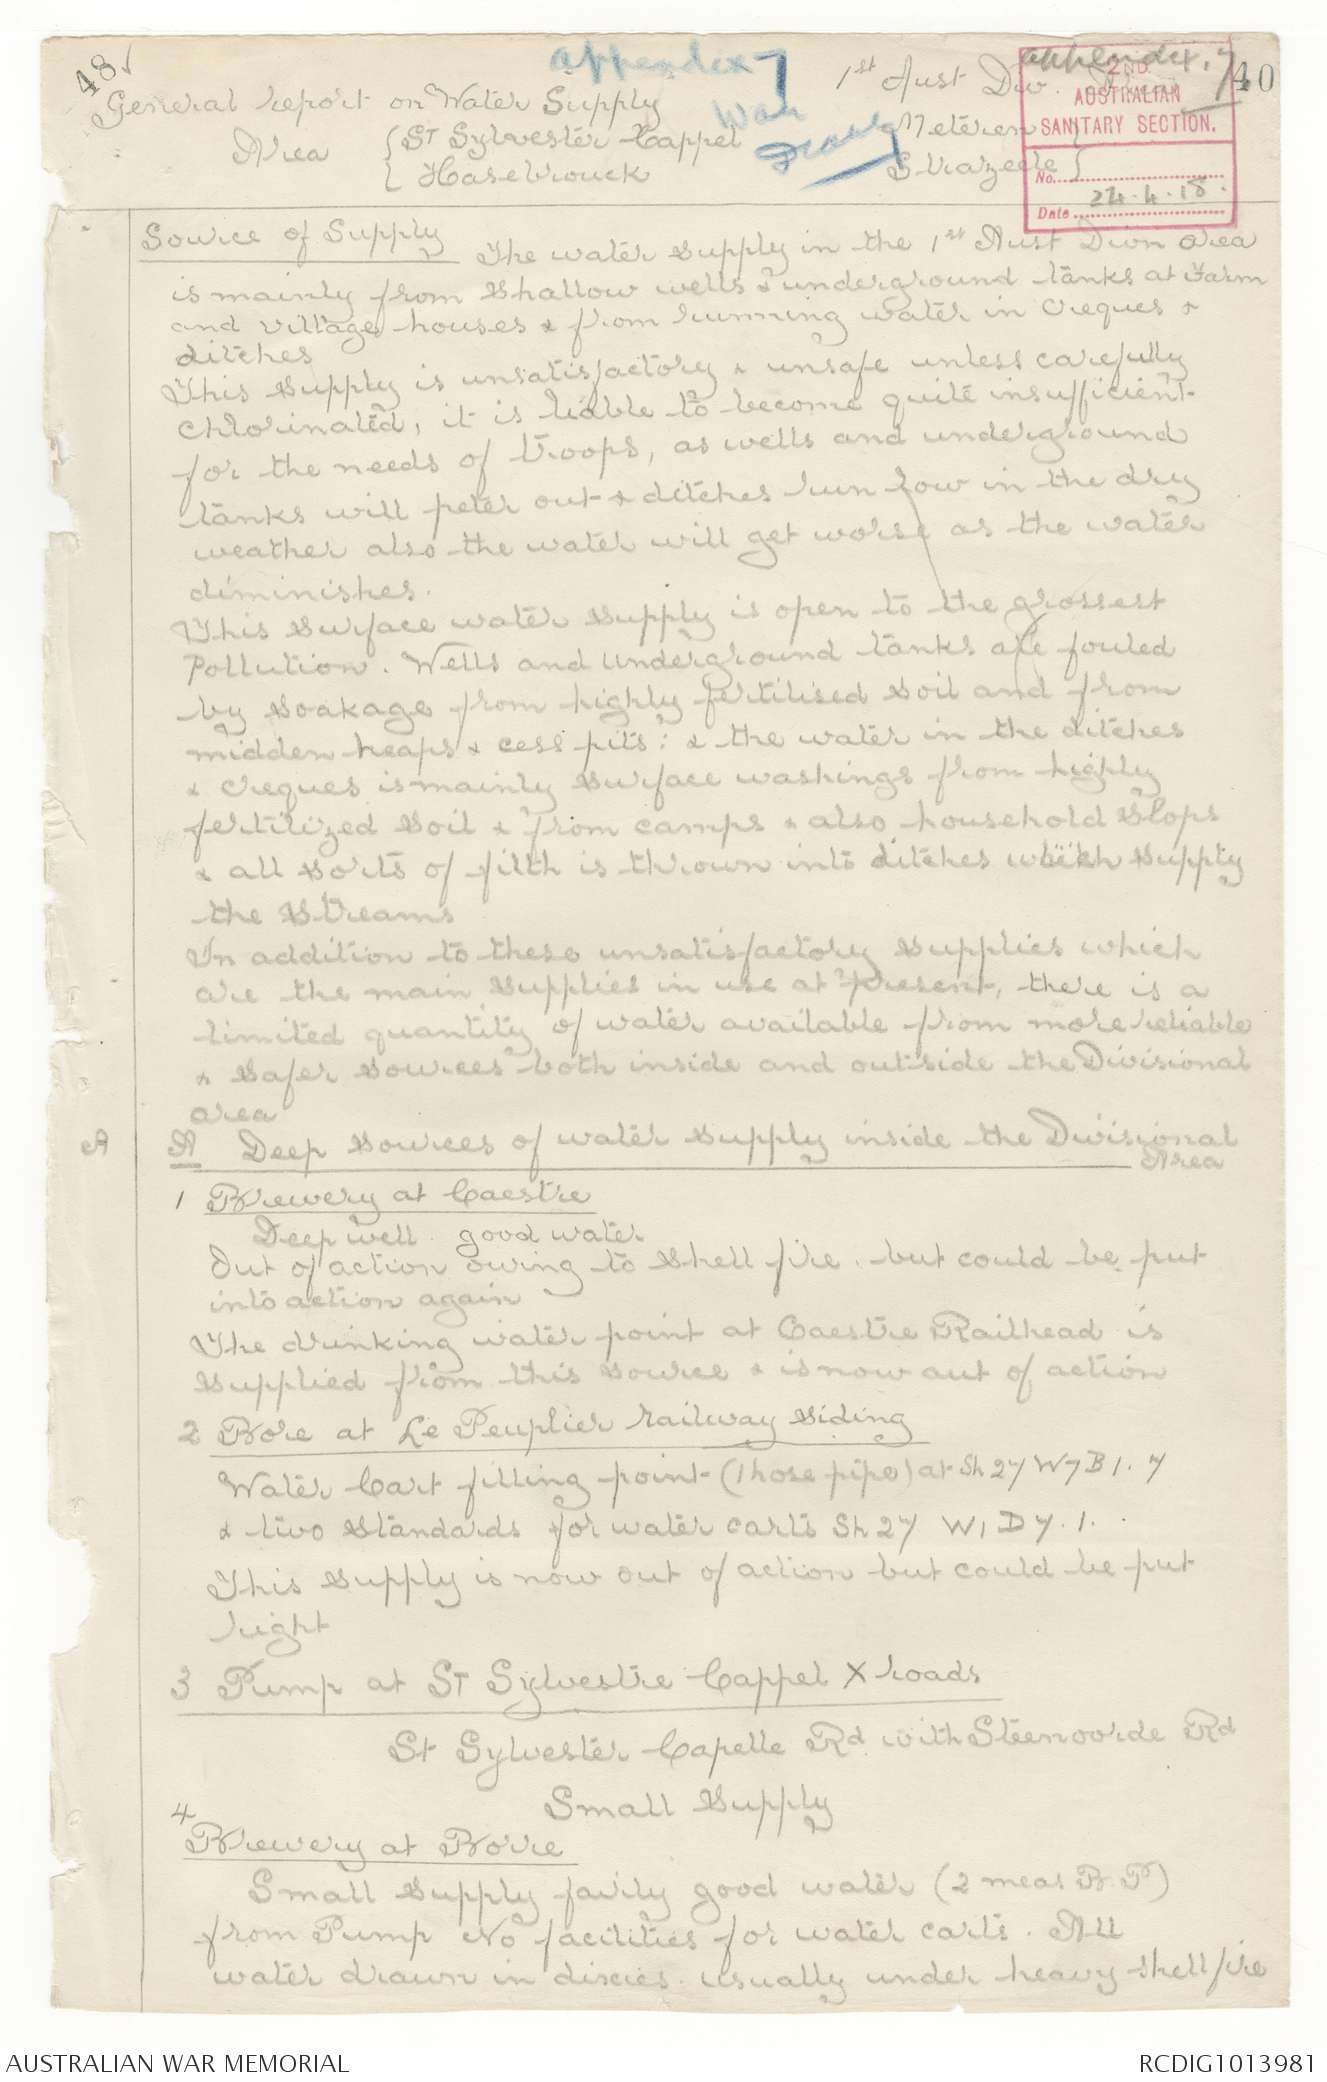 48 ✓
appendix 7
War
Diary
1st Aust Div.
appendix. 7
40
2ND
AUSTRALIAN
SANITARY SECTION.
No.
Date 24.4.18.
General report on Water Supply
Area { St Sylvester Cappel Meteren }
{ Hasebrouck Strazeele }
Source of Supply The water supply in the 1st Aust Divn area
is mainly from shallow wells & underground tanks at Farm
and village houses & from running water in creques &
ditches
This supply is unsatisfactory & unsafe unless carefully
chlorinated, it is liable to become quite insufficient
for the needs of troops, as wells and underground
tanks will peter out & ditches run low in the dry
weather also the water will get worse as the water
diminishes.
This surface water supply is open to the grossest
Pollution. Wells and underground tanks are fouled
by soakage from highly fertilised soil and from
midden heaps & cess pits: & the water in the ditches
& creques is mainly surface washings from highly
fertilized soil & from camps & also household slops
& all sorts of filth is thrown into ditches which supply
the streams
In addition to these unsatisfactory supplies which
are the main supplies in use at present, there is a
limited quantity of water available from more reliable
& safer sources both inside and outside the Divisional
area
A
A Deep sources of water supply inside the Divisional
Area
1 Brewery at Caestre
Deep well good water
Out of action owing to shell fire. but could be put
into action again
The drinking water point at Caestre Railhead is
supplied from this source & is now out of action
2 Bore at Le Peuplier railway siding
Water Cart filling point (1 hose pipe) at Sh 27 W7B1.7
& two standards for water carts Sh 27 W1D7.1.
This supply is now out of action but could be put
right
3 Pump at St Sylvestre Cappel X roads
St Sylvester Capelle Rd with Steenvorde Rd
Small supply
4
Brewery at Borre
Small supply fairly good water (2 meas B.P)
from Pump No facilities for water carts. All
water drawn in dixies. usually under heavy shell fire
AUSTRALIAN WAR MEMORIAL
RCDIG1013981